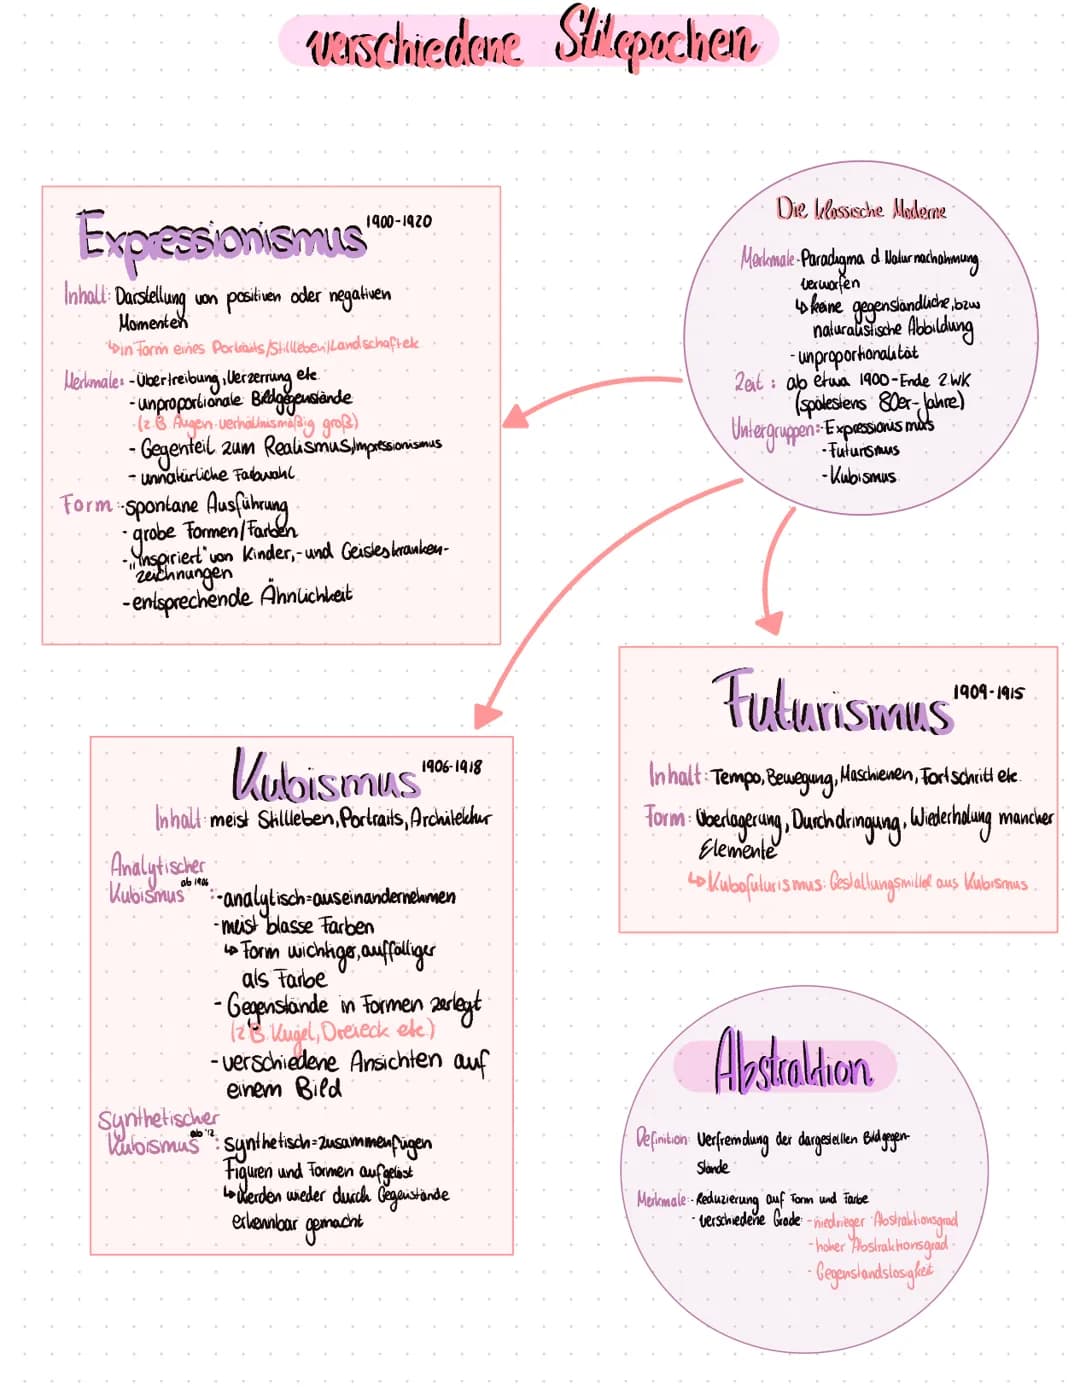 verschiedene Stilepochen
Die klassische Moderne
Merkmale:-Paradigma d. Naturnachahmung
verworfen
↳ keine gegenständliche, bzw
naturalistische Abbildung
- unproportionalität
Zeit : ab etwa 1900-Ende 2.WK
(spätestens 80er-Jahre)
Untergruppen:-Expressionismus
-Futurismus
-Kubismus
Expressionismus 1900-1920
Inhalt: Darstellung von positiven oder negativen
Momenten
↳in Form eines Portraits/Stillleben/Landschaft etc
Merkmale: -Übertreibung, Verzerrung etc.
-unproportionale Bildgegenstände
(z.B. Augen verhältnismäßig groß)
- Gegenteil zum Realismus/Impressionismus
- unnatürliche Farbwahl
Form:-spontane Ausführung
- grobe Formen/Farben
-„inspiriert" von Kinder,-und Geisteskranken-
zeichnungen
-entsprechende Ähnlichkeit
Futurismus 1909-1915
Inhalt: Tempo, Bewegung, Maschienen, Fortschritt etc.
Form: Überlagerung, Durchdringung, Wiederholung mancher
Elemente
↳ Kubofuturismus: Gestaltungsmittel aus Kubismus
Kubismus 1906-1918
Inhalt: meist Stillleben, Portraits, Architektur
Analytischer
Kubismus ab 1906 :-analytisch=auseinandernehmen
-meist blasse Farben
↳ Form wichtiger, auffälliger
als Farbe
- Gegenstände in Formen zerlegt
(z.B. Kugel, Dreieck etc.)
-verschiedene Ansichten auf
einem Bild
Synthetischer
Kubismus ab '12 : synthetisch=zusammenfügen
Figuren und Formen aufgelöst
↳werden wieder durch Gegenstände
erkennbar gemacht
Abstraktion
Definition: Verfremdung der dargestellten Bildgegen-
stände
Merkmale:-Reduzierung auf Form und Farbe
- verschiedene Grade: -niedrieger Abstraktionsgrad
-hoher Abstraktionsgrad
- Gegenstandslosigkeit